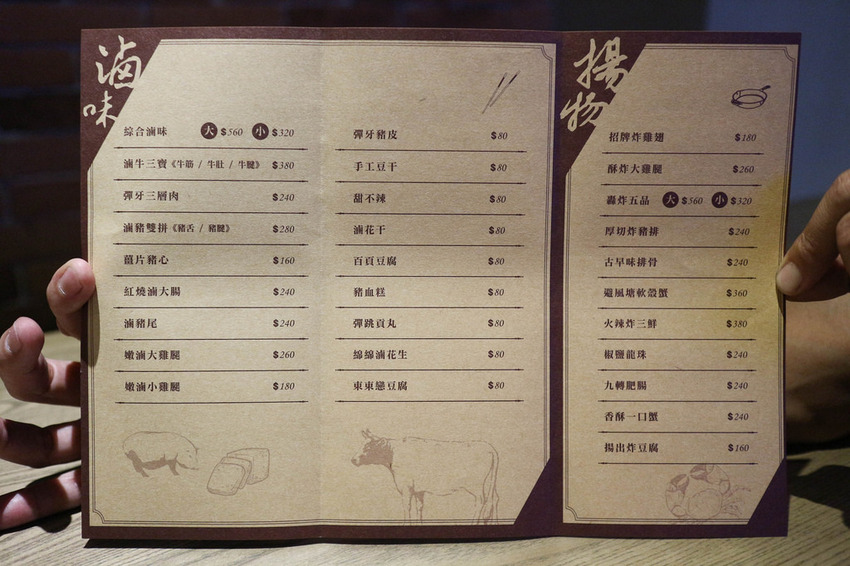 滷味
綜合滷味 大 $560 小 $320
滷牛三寶《牛筋 / 牛肚 / 牛腱》 $380
彈牙三層肉 $240
滷豬雙拼《豬舌 / 豬腱》 $280
薑片豬心 $160
紅燒滷大腸 $240
滷豬尾 $240
嫩滷大雞腿 $260
嫩滷小雞腿 $180
彈牙豬皮 $80
手工豆干 $80
甜不辣 $80
滷花干 $80
百頁豆腐 $80
豬血糕 $80
彈跳貢丸 $80
綿綿滷花生 $80
東東戀豆腐 $80
揚物
招牌炸雞翅 $180
酥炸大雞腿 $260
轟炸五品 大 $560 小 $320
厚切炸豬排 $240
古早味排骨 $240
避風塘軟殼蟹 $360
火辣炸三鮮 $380
椒鹽龍珠 $240
九轉肥腸 $240
香酥一口蟹 $240
揚出炸豆腐 $160